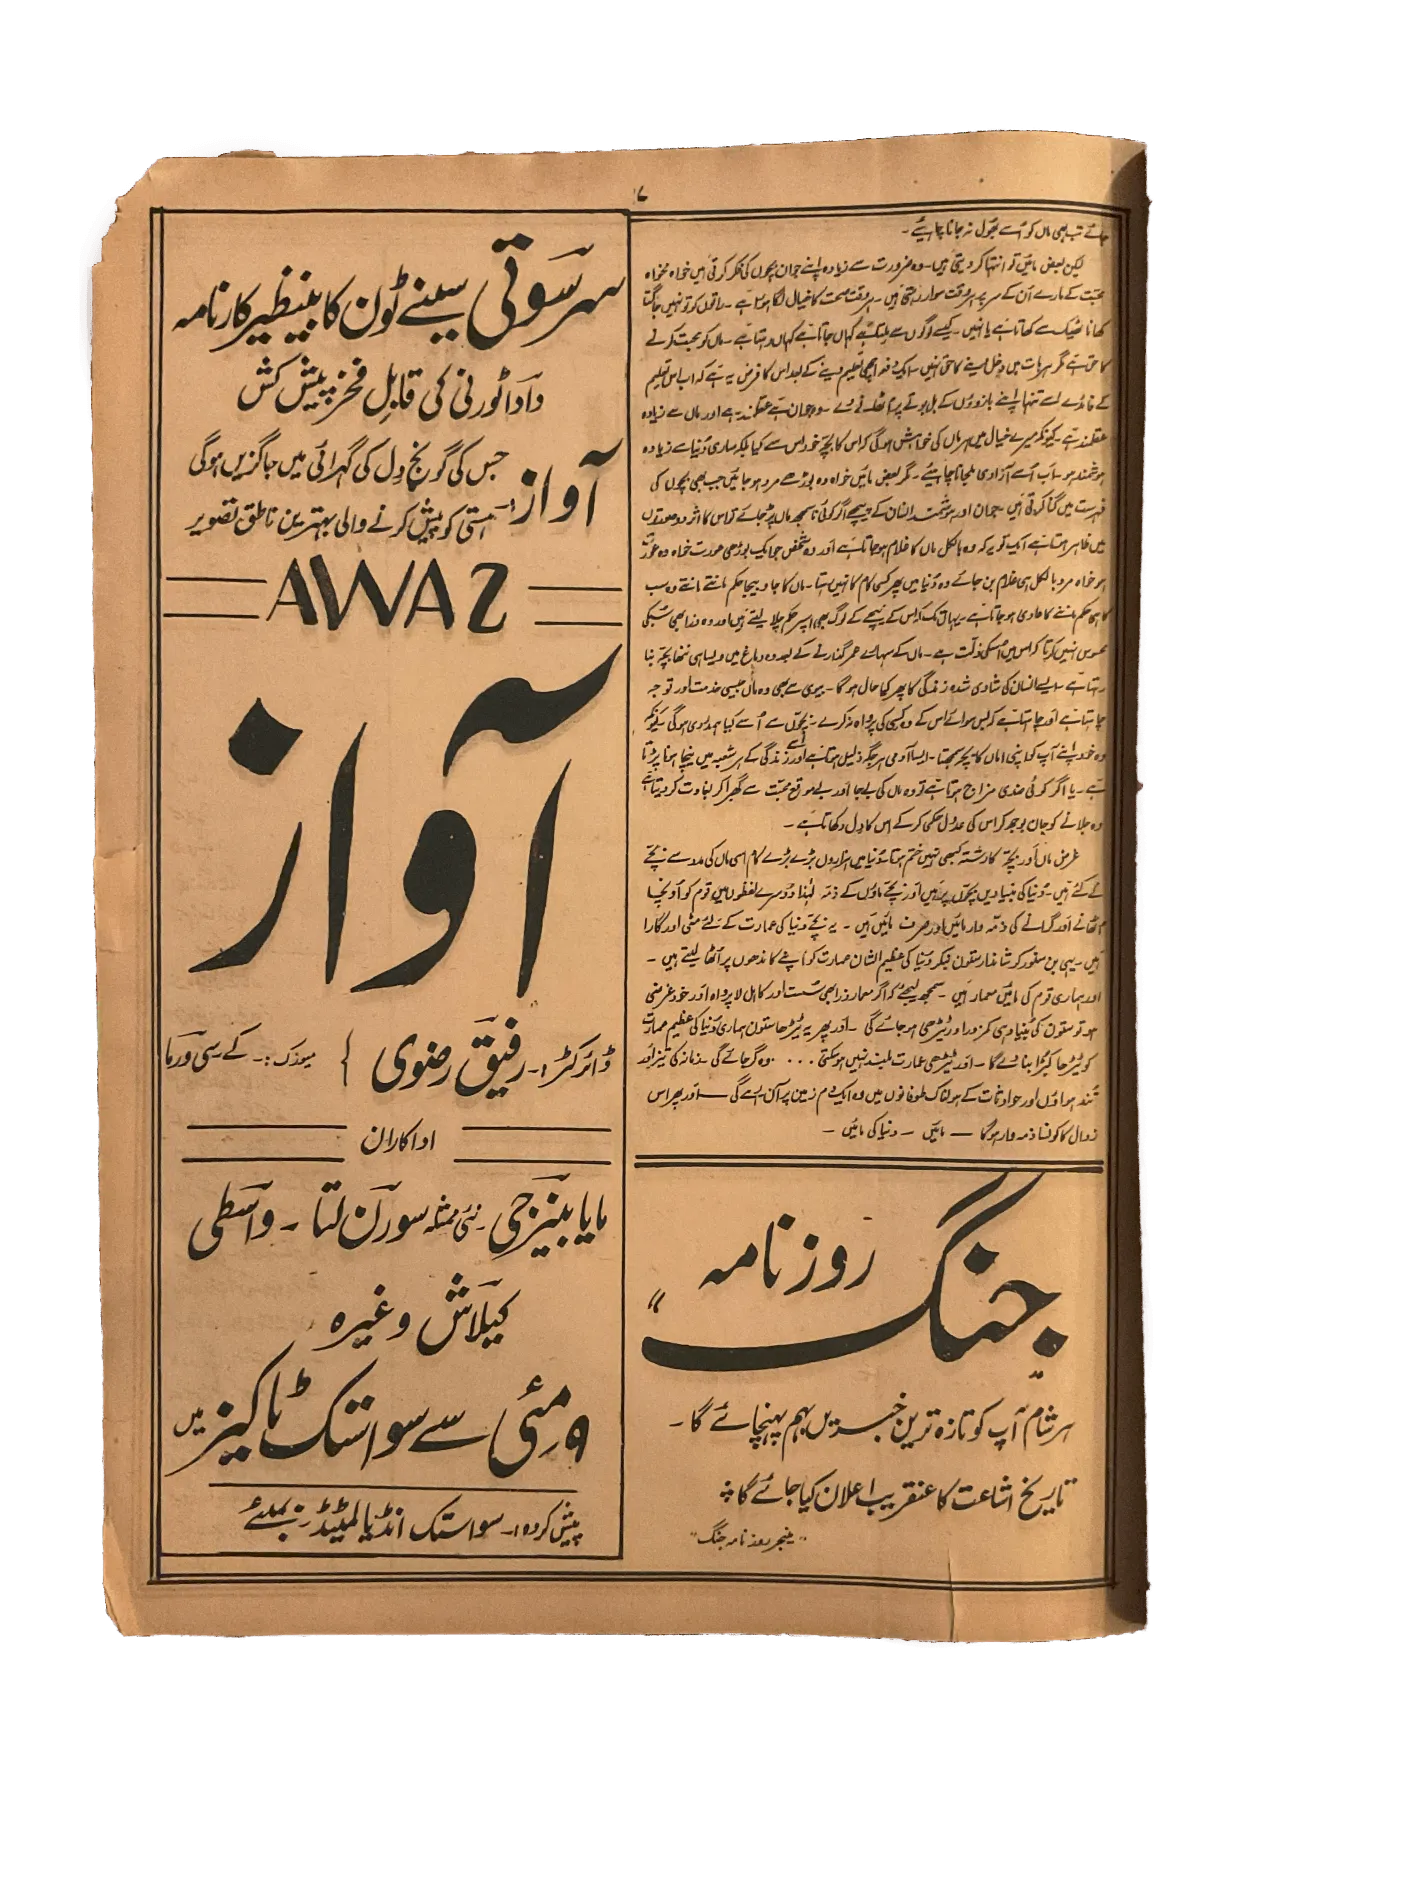 ۱۷
جائے تب بھی ماں کو اُسے بھول نہ جانا چاہیے۔
لیکن بعض مائیں تو انتہا کر دیتی ہیں۔ وہ ضرورت سے زیادہ اپنے جوان بچوں کی فکر کرتی ہیں خواہ مخواہ
محبت کے مارے اُن کے سر پر ہر وقت سوار رہتی ہیں۔ ہر وقت صحت کا خیال لگا ہوتا ہے۔ راتوں کو تو نہیں جاگتا
کھانا ٹھیک سے کھاتا ہے یا نہیں۔ کیسے لوگوں سے ملتا ہے کہاں جاتا ہے کہاں رہتا ہے۔ ماں کو محبت کرنے
کا حق ہے مگر ہر بات میں دخل دینے کا حق نہیں۔ ایک دفعہ اچھی تعلیم دینے کے بعد اس کا فرض یہ ہے کہ اب اس تعلیم
کے فائدے اسے تنہا اپنے بازوؤں کے بل بوتے پر اُٹھانے دے۔ وہ جوان ہے عقلمند ہے اور ماں سے زیادہ
عقلمند ہے۔ کیونکہ میرے خیال میں ہر ماں کی خواہش ہو گی کہ اس کا بچّہ خود اس سے کیا بلکہ ساری دُنیا سے زیادہ
ہوشمند ہو۔ اب اُسے آزادی مل جانا چاہیے۔ مگر بعض مائیں خواہ وہ بوڑھے مرد ہو جائیں جب بھی بچوں کی
فہرست میں گنا کرتی ہیں۔ جوان اور ہوشمند انسان کے پیچھے اگر کوئی ناسمجھ ماں پڑ جائے تو اس کا اثر دو صورتوں
میں ظاہر ہوتا ہے ایک تو یہ کہ وہ بالکل ماں کا غلام ہو جاتا ہے اور وہ شخص جو ایک بوڑھی عورت خواہ وہ عورت
ہو خواہ مرد بالکل ہی غلام بن جائے وہ دُنیا میں پھر کسی کام کا نہیں رہتا۔ ماں کا جا و بیجا حکم مانتے مانتے وہ سب
کا ہی حکم ماننے کا عادی ہو جاتا ہے۔ یہاں تک کہ اس کے نیچے کے لوگ بھی اسپر حکم چلا لیتے ہیں اور وہ ذرا بھی سُبکی
محسوس نہیں کرتا کہ اس میں اسکی ذلّت ہے۔ ماں کے سہارے عمر گذارنے کے بعد وہ دماغ میں ویسا ہی ننھا بچّہ بنا
رہتا ہے۔ ایسے انسان کی شادی شدہ زندگی کا پھر کیا حال ہو گا۔ بیوی سے بھی وہ ماں جیسی خدمت اور توجہ
چاہتا ہے اور چاہتا ہے کہ بس سوائے اس کے وہ کسی کی پرواہ نہ کرے۔ بچوں سے اُسے کیا ہمدردی ہو گی کیونکہ
وہ خود اپنے آپ کو اپنی اماں کا بچّہ سمجھتا۔ ایسا آدمی ہر جگہ ذلیل ہوتا ہے اور اُسے زندگی کے ہر شعبہ میں نیچا ہونا پڑتا
ہے۔ یا اگر کوئی ضدی مزاج ہوتا ہے تو وہ ماں کی بے جا اور بے موقع محبّت سے گھبرا کر بغاوت کر دیتا ہے
وہ جلانے کو جان بوجھ کر اس کی عدول حکمی کر کے اس کا دل دکھاتا ہے۔
غرض ماں اور بچّہ کا رشتہ کبھی نہیں ختم ہوتا۔ دُنیا میں ہزاروں بڑے بڑے کام اسی ماں کی مدد سے بچّے
کے گئے ہیں۔ دُنیا کی بنیادیں بچّوں پر ہیں اور بچّے ماؤں کے ذمّہ لہٰذا دُوسرے لفظوں میں قوم کو اُونچا
اُٹھانے اور گرانے کی ذمہ وار مائیں اور صرف مائیں ہیں۔ یہ بچّے دنیا کی عمارت کے لئے مٹی اور گارا
ہیں۔ یہی بن سنور کر شاندار ستون بنکر دنیا کی عظیم الشان عمارت کو اپنے کاندھوں پر اُٹھا لیتے ہیں۔
اور ہماری قوم کی مائیں معمار ہیں۔ سمجھ لیجئے کہ اگر معمار ذرا بھی سُست اور کاہل لا پرواہ اور خود غرضی
ہو تو ستون کی بُنیاد ہی کمزور اور ٹیڑھی ہو جائے گی۔ اور پھر یہ ٹیڑھا ستون ہماری دُنیا کی عظیم عمارت
کو ٹیڑھا کبڑا بنا دے گا۔ اور ٹیڑھی عمارت بلند نہیں ہو سکتی .... وہ گر جائے گی۔ زمانہ کی تیز اور
تُند ہواؤں اور حوادثات کے ہولناک طوفانوں میں وہ ایک دم زمین پر آن رہے گی — اور پھر اس
زوال کا کون ذمہ وار ہو گا — مائیں — دنیا کی مائیں۔
روزنامہ
جنگ
"
ہر شام آپ کو تازہ ترین خبریں بہم پہنچائے گا۔
تاریخ اشاعت کا عنقریب اعلان کیا جائے گا
"مینجر روزنامہ جنگ"
سرسوتی سینے ٹون کا بینظیر کارنامہ
دادا ٹورنی کی قابلِ فخر پیش کش
آواز:۔
جس کی گونج دِل کی گہرائی میں جاگزیں ہوگی
ہستی کو پیش کرنے والی بہترین ناطق تصویر
AWAZ
آواز
ڈائرکٹر:۔ رفیق رضوی { میوزک:۔ کے سی ورما
اداکاران
مایا بینرجی۔ نئی ممثلہ سورن لتا۔ واسطی
کیلاش وغیرہ
۹ مئی سے سواستک ٹاکیز میں
پیش کردہ:۔ سواستک انڈیا لمٹیڈ بمبئی